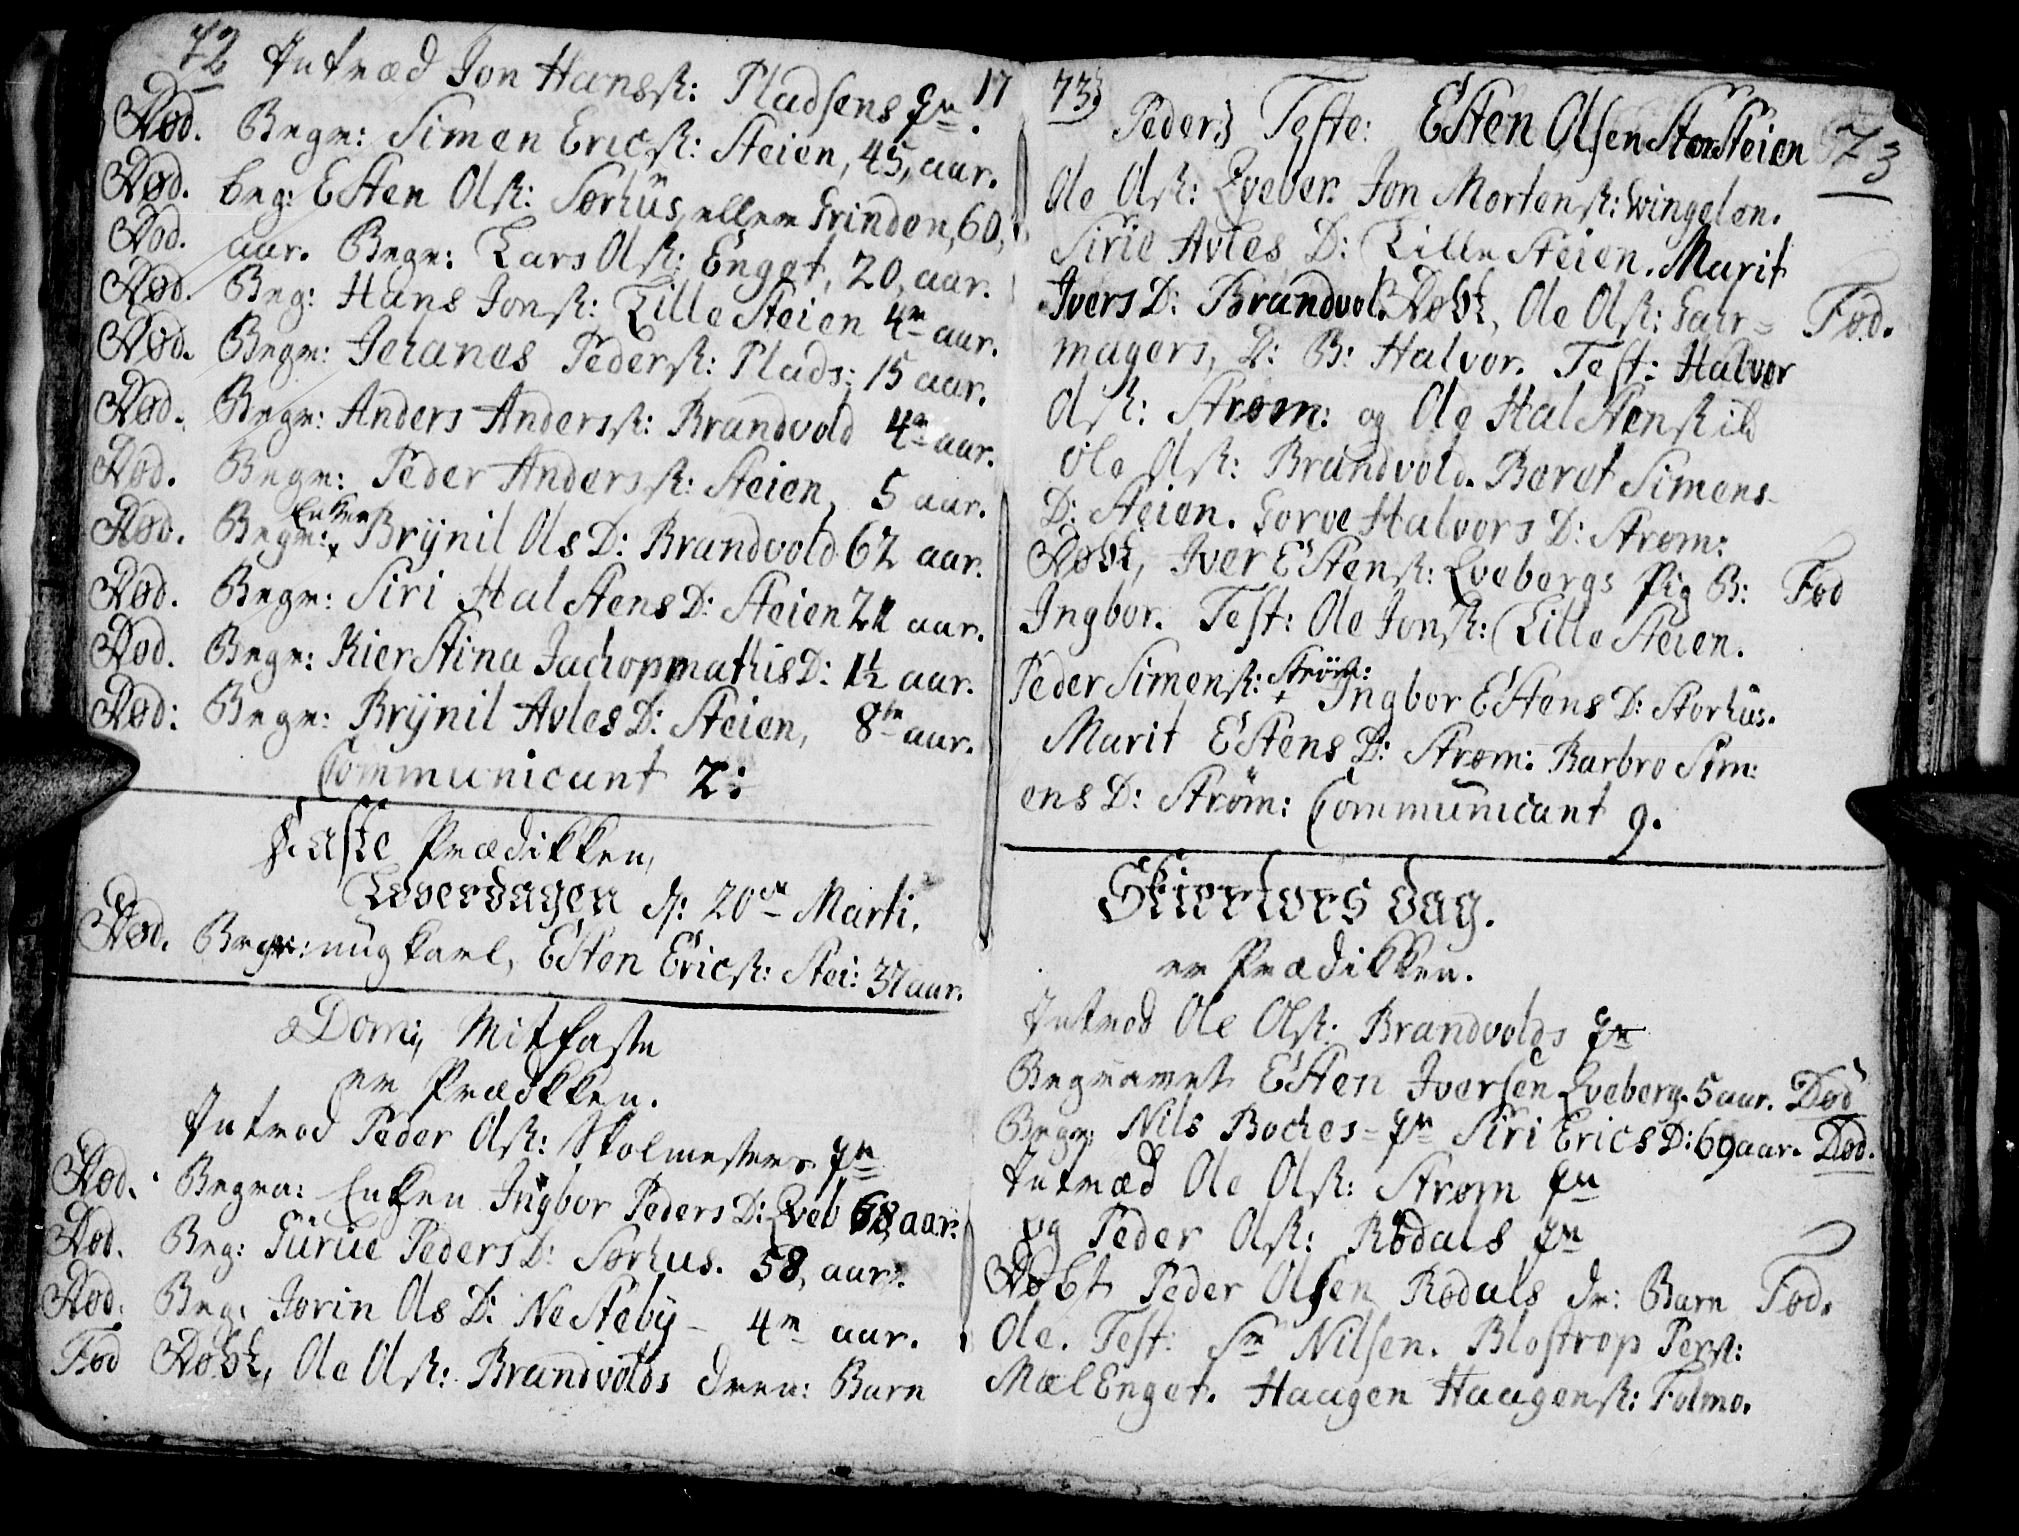 72 Intræd Jon Hanss: Pladsens qv. 17
Død. Begr: Simen Erics: Steien, 45, aar.
Død. beg: Esten Ols: Sorhus, eller Grinden, 60,
Død. aar. Begr: Lars Ols: Engget, 20, aar.
Død. Beg: Hans Jons: Lille Steien 4r aar.
Død. Begr: Johanes Peders: Plads: 15 aar.
Død. Begr: Anders Anderss: Brandvold 4r aar.
Død. Begr: Peder Anderss: Steien, 5 aar.
Død. Begr: Enken Brÿnil Ols D: Brandvold 62 aar.
Død. Begr: Siri Halstens D: Steien 21 aar.
Død. Begr: Kierstina Jachopmathis D: 1½ aar.
Død: Begr: Brÿnil Avles D: Steien, 8te aar.
Communicant 2:
Faste Prædikken,
Løverdagen d: 20de Marti.
Død. Begr: ung karl, Esten Erics: Stei: 37 aar.
Domi, Mitfaste
er Prædikken.
Introd Peder Ols: Skolmesters qv
Død. Begra: Enken Ingbor Peders D: Qveb 68, aar.
Død. Beg: Turue Peders D: Sorhus. 58, aar.
Død. Beg: Jorin Ols D: Nesteby - 4r aar.
Fød Døbt, Ole Ols: Brandvolds dren: Barn
73 Peder, Teste: Esten Olsen Storsteien 73
Ole Ols: Qveber. Jon Mortens: Vingelen.
Sirie Avles D: Lille Steien. Marit
Ivers D: Brandvol. Døbt, Ole Ols: Gar= Fød.
magers, D: B: Halvor. Test: Halvor
Ols: Strøm: og Ole Halstens
Ole Ols: Brandvold. Beret Simens
D: Steien. Gorve Halvors D: Strøm:
Døbt, Iver Estens: Qvebergs Pig B: Fød
Ingbor. Test: Ole Jons: Lille Steien.
Peder Simens: Strøm: Ingbor Estens D: Storhus.
Marit Estens D: Strøm: Barbro Sim:
ens D: Strøm: Communicant 9.
Skiertors dag.
er Prædikken.
Introd Ole Ols: Brandvolds qv
Begravet Esten Iversen Qveberg. 5 aar. Død
Begr: Nils Boches = qv Siri Erics D: 69 aar. Død.
Intræd Ole Ols: Strøm qv
og Peder Ols: Rødals qv
Døbt Peder Olsen Rødals dr: Barn Fød.
Ole. Test: Sr Nilsen. Blostrop Pers:
Mælenget. Haagen Haagens: Tolmo.